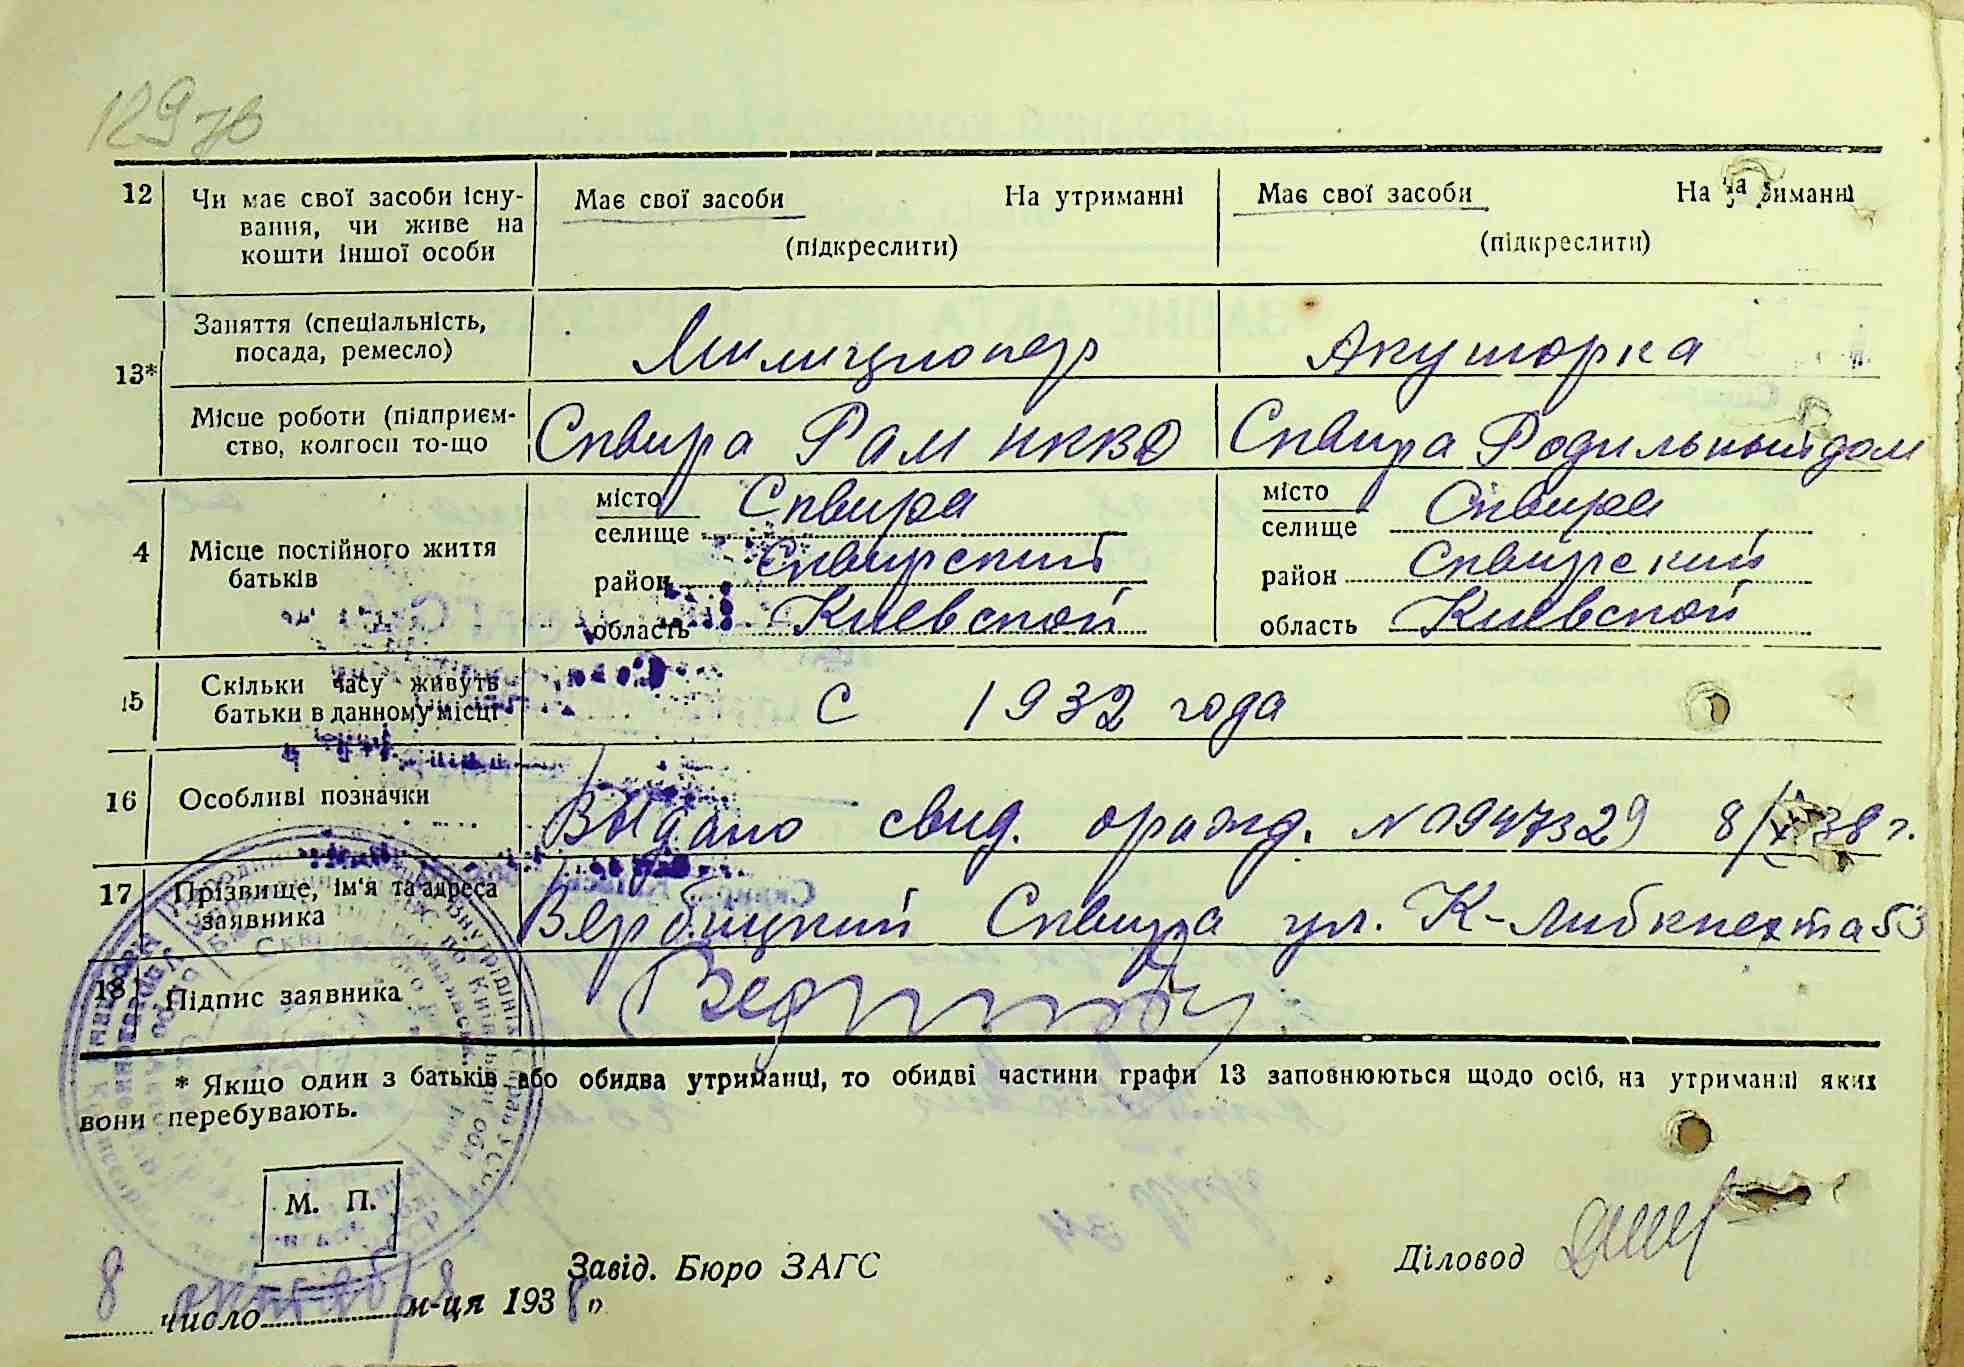 129 зв
12 Чи має свої засоби існу- Має свої засоби На утриманні Має свої засоби На иманні
вання, чи живе на (підкреслити) (підкреслити)
кошти іншої особи
13* Заняття (спеціальність, Милиционер Акушорка
посада, ремесло)
Місце роботи (підприєм- Сквира Рам НКВД Сквира Родильный дом
ство, колгосп то-що
4 Місце постійного життя місто Сквира місто Сквира
батьків селище селище
район Сквирский район Сквирский
область Киевской область Киевской
15 Скільки часу живуть С 1932 года
батьки в данному місці
16 Особливі позначки Выдано свид. оражд. № 0947329 8/X 38 г.
17 Прізвище, ім'я та адреса Вербицкий Сквира ул. К-Либкнехта 53
заявника
18 Підпис заявника
* Якщо один з батьків або обидва утриманці, то обидві частини графи 13 заповнюються щодо осіб, на утриманні яких
вони перебувають.
М. П.
Завід. Бюро ЗАГС Діловод
8 число октября м-ця 1938 „